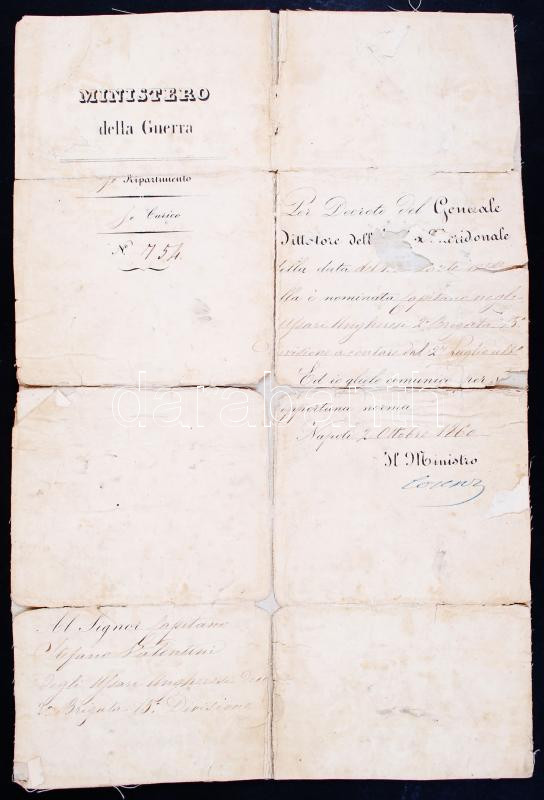 MINISTERO
della Guerra
Ripartimento
Carico
N° 754
Per Decreto del Generale
Dittatore dell' Meridonale
della data del
Ella è nominata Capitano negli
Ussari Ungheresi 2a Brigata 15a
Divisione a contare dal 2 Luglio
Ed io glielo comunico per
opportuna norma
Napoli 2 Ottobre 1860
Il Ministro
Cosenz
Al Signor Capitano
Stefano Valentini
degli Ussari Ungheresi
2a Brigata 15a Divisione
darabanth